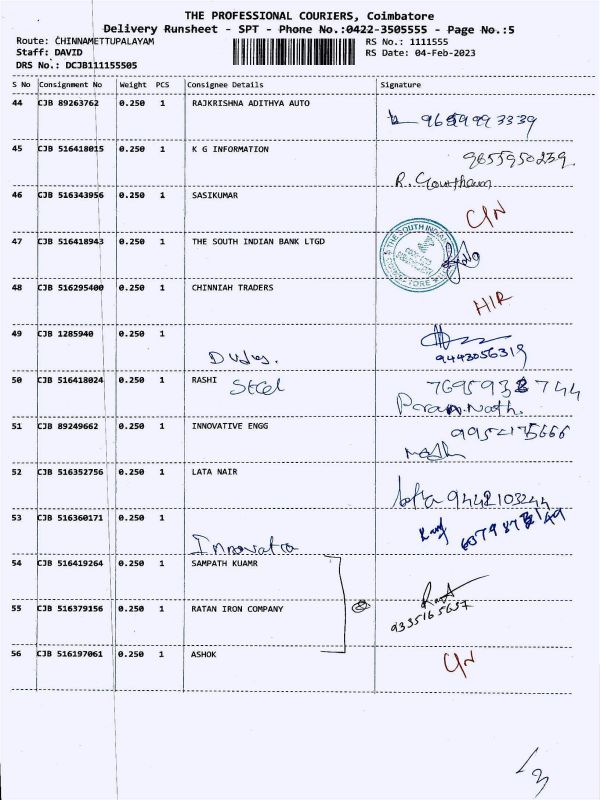 THE PROFESSIONAL COURIERS, Coimbatore
Delivery Runsheet - SPT - Phone No.:0422-3505555 - Page No.:5
Route: CHINNAMETTUPALAYAM RS No.: 1111555
Staff: DAVID RS Date: 04-Feb-2023
DRS No.: DCJB111155505
S No Consignment No Weight PCS Consignee Details Signature
44 CJB 89263762 0.250 1 RAJKRISHNA ADITHYA AUTO
45 CJB 516418015 0.250 1 K G INFORMATION
9655950239
R. Gowtham
46 CJB 516343956 0.250 1 SASIKUMAR
C/N
47 CJB 516418943 0.250 1 THE SOUTH INDIAN BANK LTGD
THE SOUTH INDIAN
48 CJB 516295400 0.250 1 CHINNIAH TRADERS
49 CJB 1285940 0.250 1
9443056319
50 CJB 516418024 0.250 1 RASHI Steel
51 CJB 89249662 0.250 1 INNOVATIVE ENGG
52 CJB 516352756 0.250 1 LATA NAIR
53 CJB 516360171 0.250 1
54 CJB 516419264 0.250 1 SAMPATH KUAMR
55 CJB 516379156 0.250 1 RATAN IRON COMPANY
9335165657
56 CJB 516197061 0.250 1 ASHOK
C/N